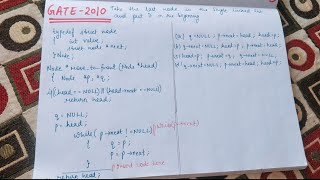 GATE-2010
Take the last node in the singly linked list
and put it in the beginning
typedef struct node
{ int value;
struct node *next;
} Node;
Node * move_to_front (Node *head)
{ Node *p, *q;
if((head == NULL) || (head→next == NULL))
return head;
q = NULL;
p = head;
while( p→next != NULL)
{ q = p;
p = p→next;
}
return head;
(a) q = NULL; p→next = head; head = p;
(b) q→next = NULL; head = p; p→next = head;
(c) head = p; p→next = q; q→next = NULL;
(d) q→next = NULL; p→next = head; head = p;